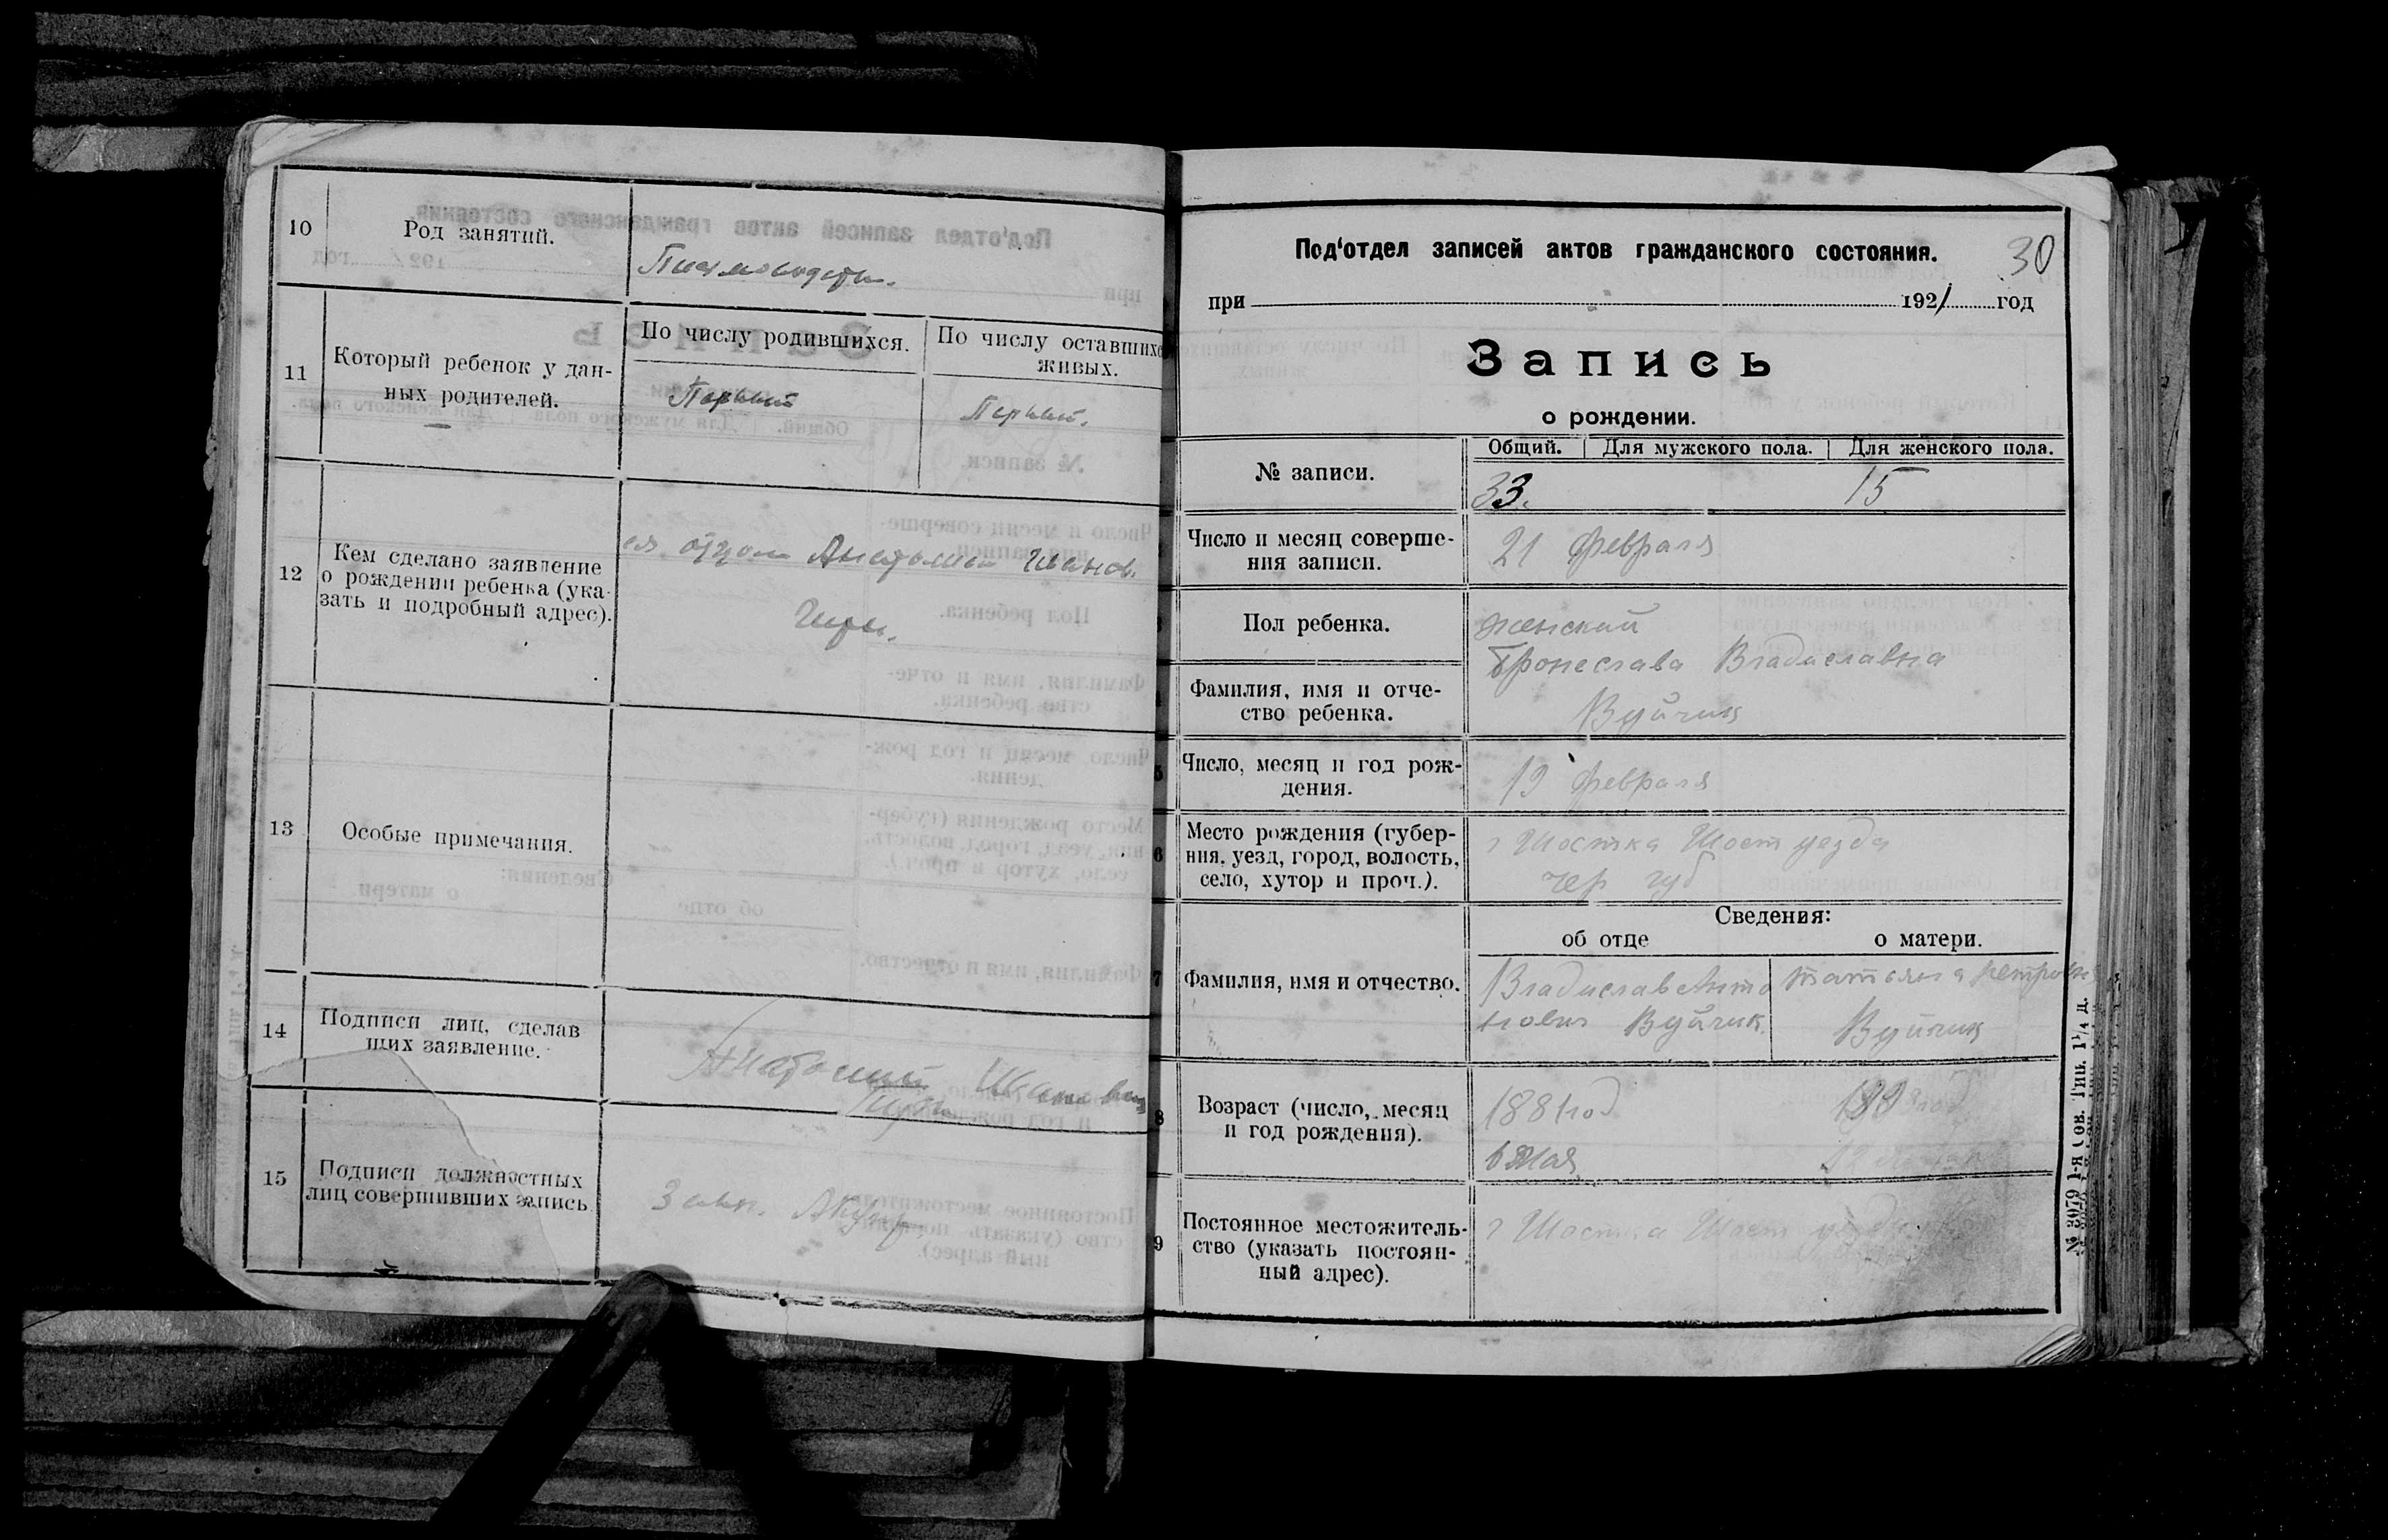 10
Род занятий.
11
Который ребенок у дан-
ных родителей.
По числу родившихся.
По числу оставшихс
живых.
Первый
Первый.
12
Кем сделано заявление
о рождении ребенка (ука-
зать и подробный адрес).
отцом Анатолий Иванов.
13
Особые примечания.
14
Подписи лиц, сделав
ших заявление.
Анатолий Иванович
15
Подписи должностных
лиц совершивших запись
Под‘отдел записей актов гражданского состояния.
30
при
1921 год
Запись
о рождении.
№ записи.
Общий. Для мужского пола. Для женского пола.
33. 15
Число и месяц соверше-
ния записи.
21 февраля
Пол ребенка.
женский
Фамилия, имя и отче-
ство ребенка.
Бронеслава Владиславна
Вуйчик
5
Число, месяц и год рож-
дения.
19 февраля
6
Место рождения (губер-
ния, уезд, город, волость,
село, хутор и проч.).
г Шостка Шост уезда
чер губ
Сведения:
об отце
о матери.
7
Фамилия, имя и отчество.
Владислав Анто
нович Вуйчик.
татьяна петровн
Вуйчик
8
Возраст (число, месяц
и год рождения).
1881 год
6 мая
9
Постоянное местожитель-
ство (указать постоян-
ный адрес).
г Шостка Шост уезда
№ 3079 1-я Сов. Тип. 1¼ д.